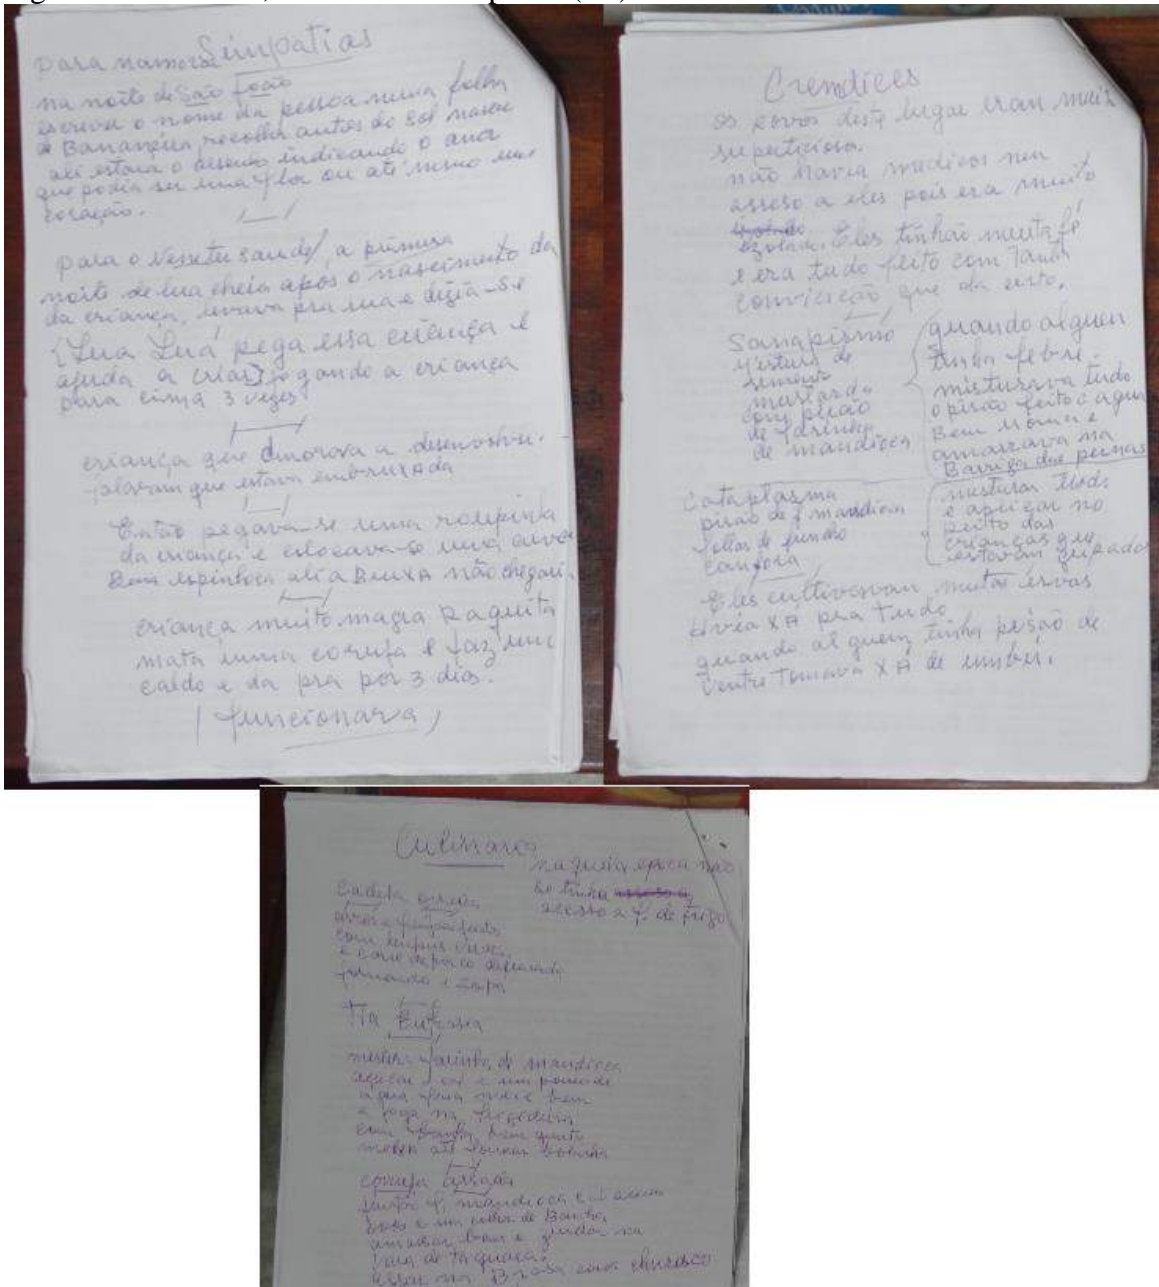 Simpatias
para namorar
na noite de São João
escreva o nome da pessoa numa folha
de Bananeira, recolher antes do sol nascer
ali estara o desenho indicando o
que podia ser uma flor ou até mesmo um
coração.
para o Nenê ter saude, a primeira
noite de lua cheia após o nascimento da
da criança, levava pra rua e dizia-se
{Lua Luá pega essa criança e
ajuda a criar} jogando a criança
para cima 3 vezes
criança que dmorova a desenvolver.
falavam que estava embruxada
Então pegava-se uma roupinha
da criança e colocava-se
Bem espinhosa ali a Bruxa não
criança muito magra Raquita
mata uma coruja e faz um
caldo e da pra por 3 dias.
funcionava
Crendices
os povos deste lugar eran muiz
não havia medicos nen
asseso a eles pois era muito
ezolado. Eles tinhão muita fé
e era tudo feito com Tanta
que da certo.
Sanapismo
Mistura de
semente
mustarda
com pirão
de farinha
de mandioca
quando alguen
tinha febre.
misturava tudo
o pirão feito c agua
Bem Morna e
amarrava na
Barriga das pernas
Cataplasma
pirão de f mandioca
folhas de funcho
Canfora
misturar tudo
e aplicar no
peito das
crianças que
estavam gripados
Eles cultivavam muitas ervas
XA pra tudo
quando alguem tinha prisão de
ventre Tomava XA de umbú.
Culinaria
naquela epoca não
se tinha
acesso a f. de trigo
com
e carne de porco defumada
Tia Eufrasia
mistura farinha de mandioca
açucar e um pouco de
agua fria mexe bem
e joga na frigideira
com Banha bem quente
mexer até
coruja assada
f. mandioca
e um colher de Banha,
amassar bem e
vara de taquara.
assar na Brasa como churasco